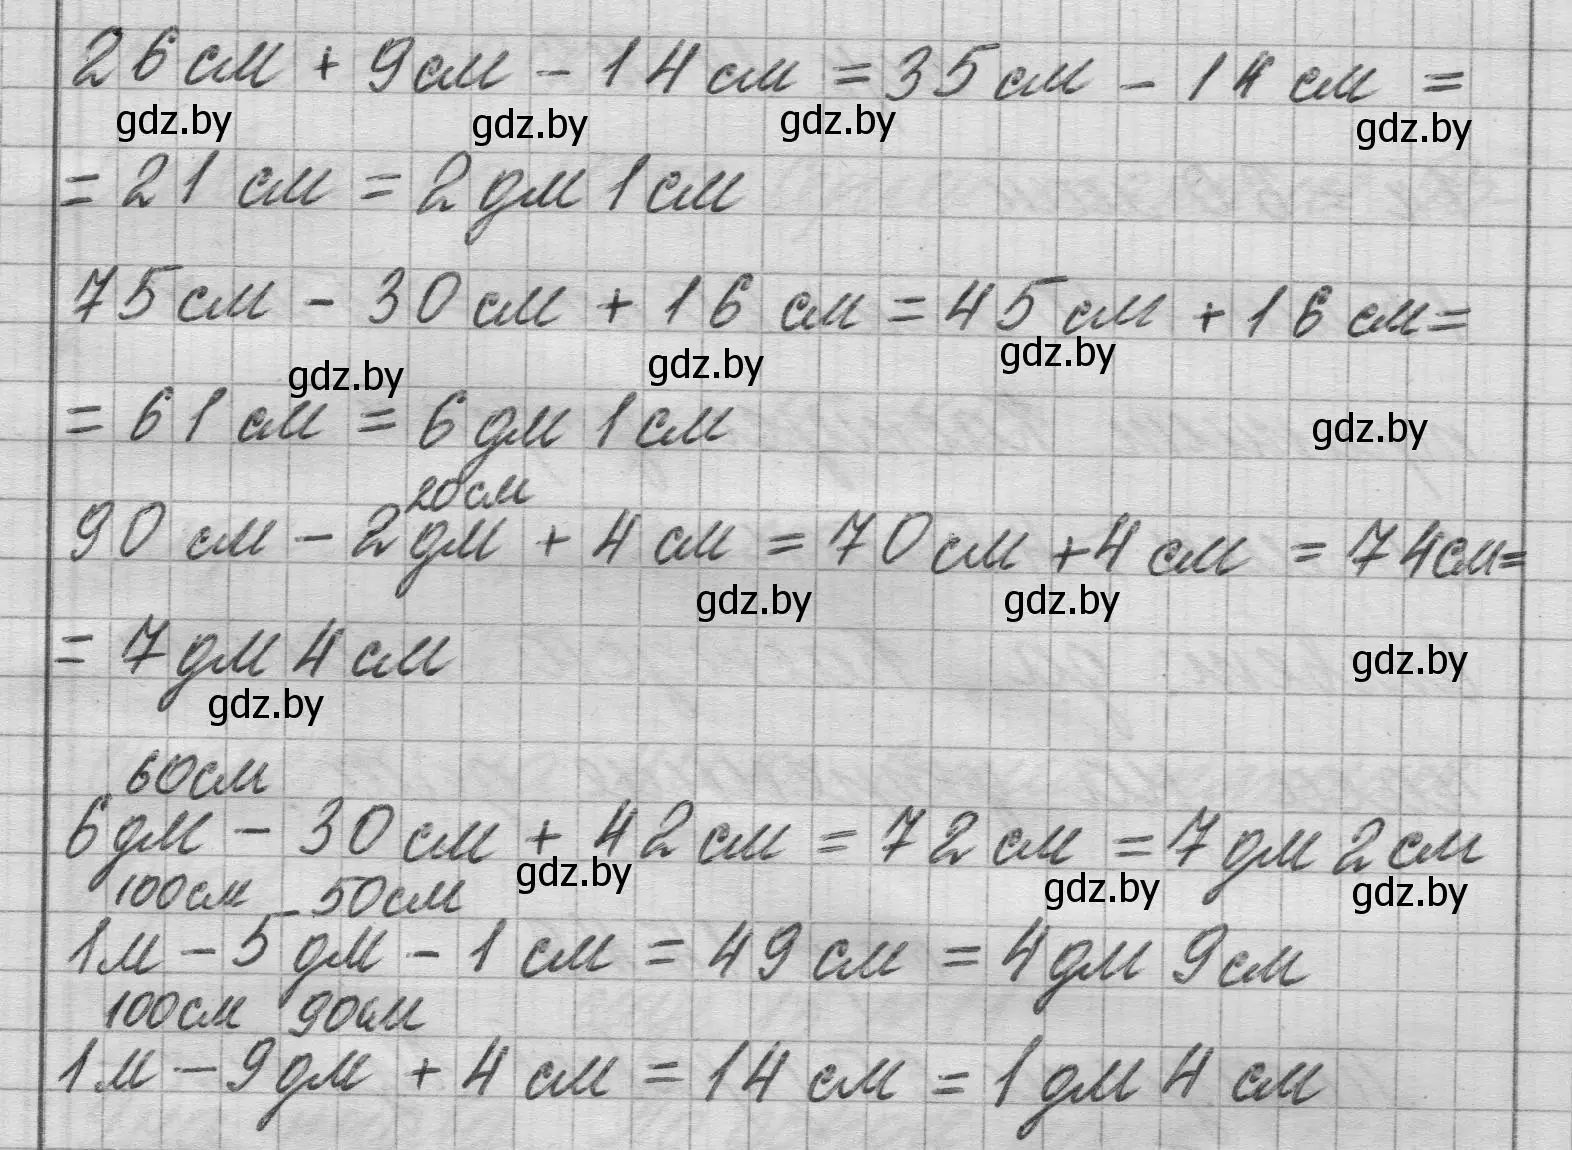 26 см + 9 см - 14 см = 35 см - 14 см =
gdz.by gdz.by gdz.by gdz.by
= 21 см = 2 дм 1 см
75 см - 30 см + 16 см = 45 см + 16 см =
gdz.by gdz.by gdz.by
= 61 см = 6 дм 1 см gdz.by
20 см
90 см - 2 дм + 4 см = 70 см + 4 см = 74 см =
gdz.by gdz.by
= 7 дм 4 см gdz.by
gdz.by
60 см
6 дм - 30 см + 42 см = 72 см = 7 дм 2 см
gdz.by gdz.by gdz.by
100 см - 50 см
1 м - 5 дм - 1 см = 49 см = 4 дм 9 см
100 см 90 см
1 м - 9 дм + 4 см = 14 см = 1 дм 4 см